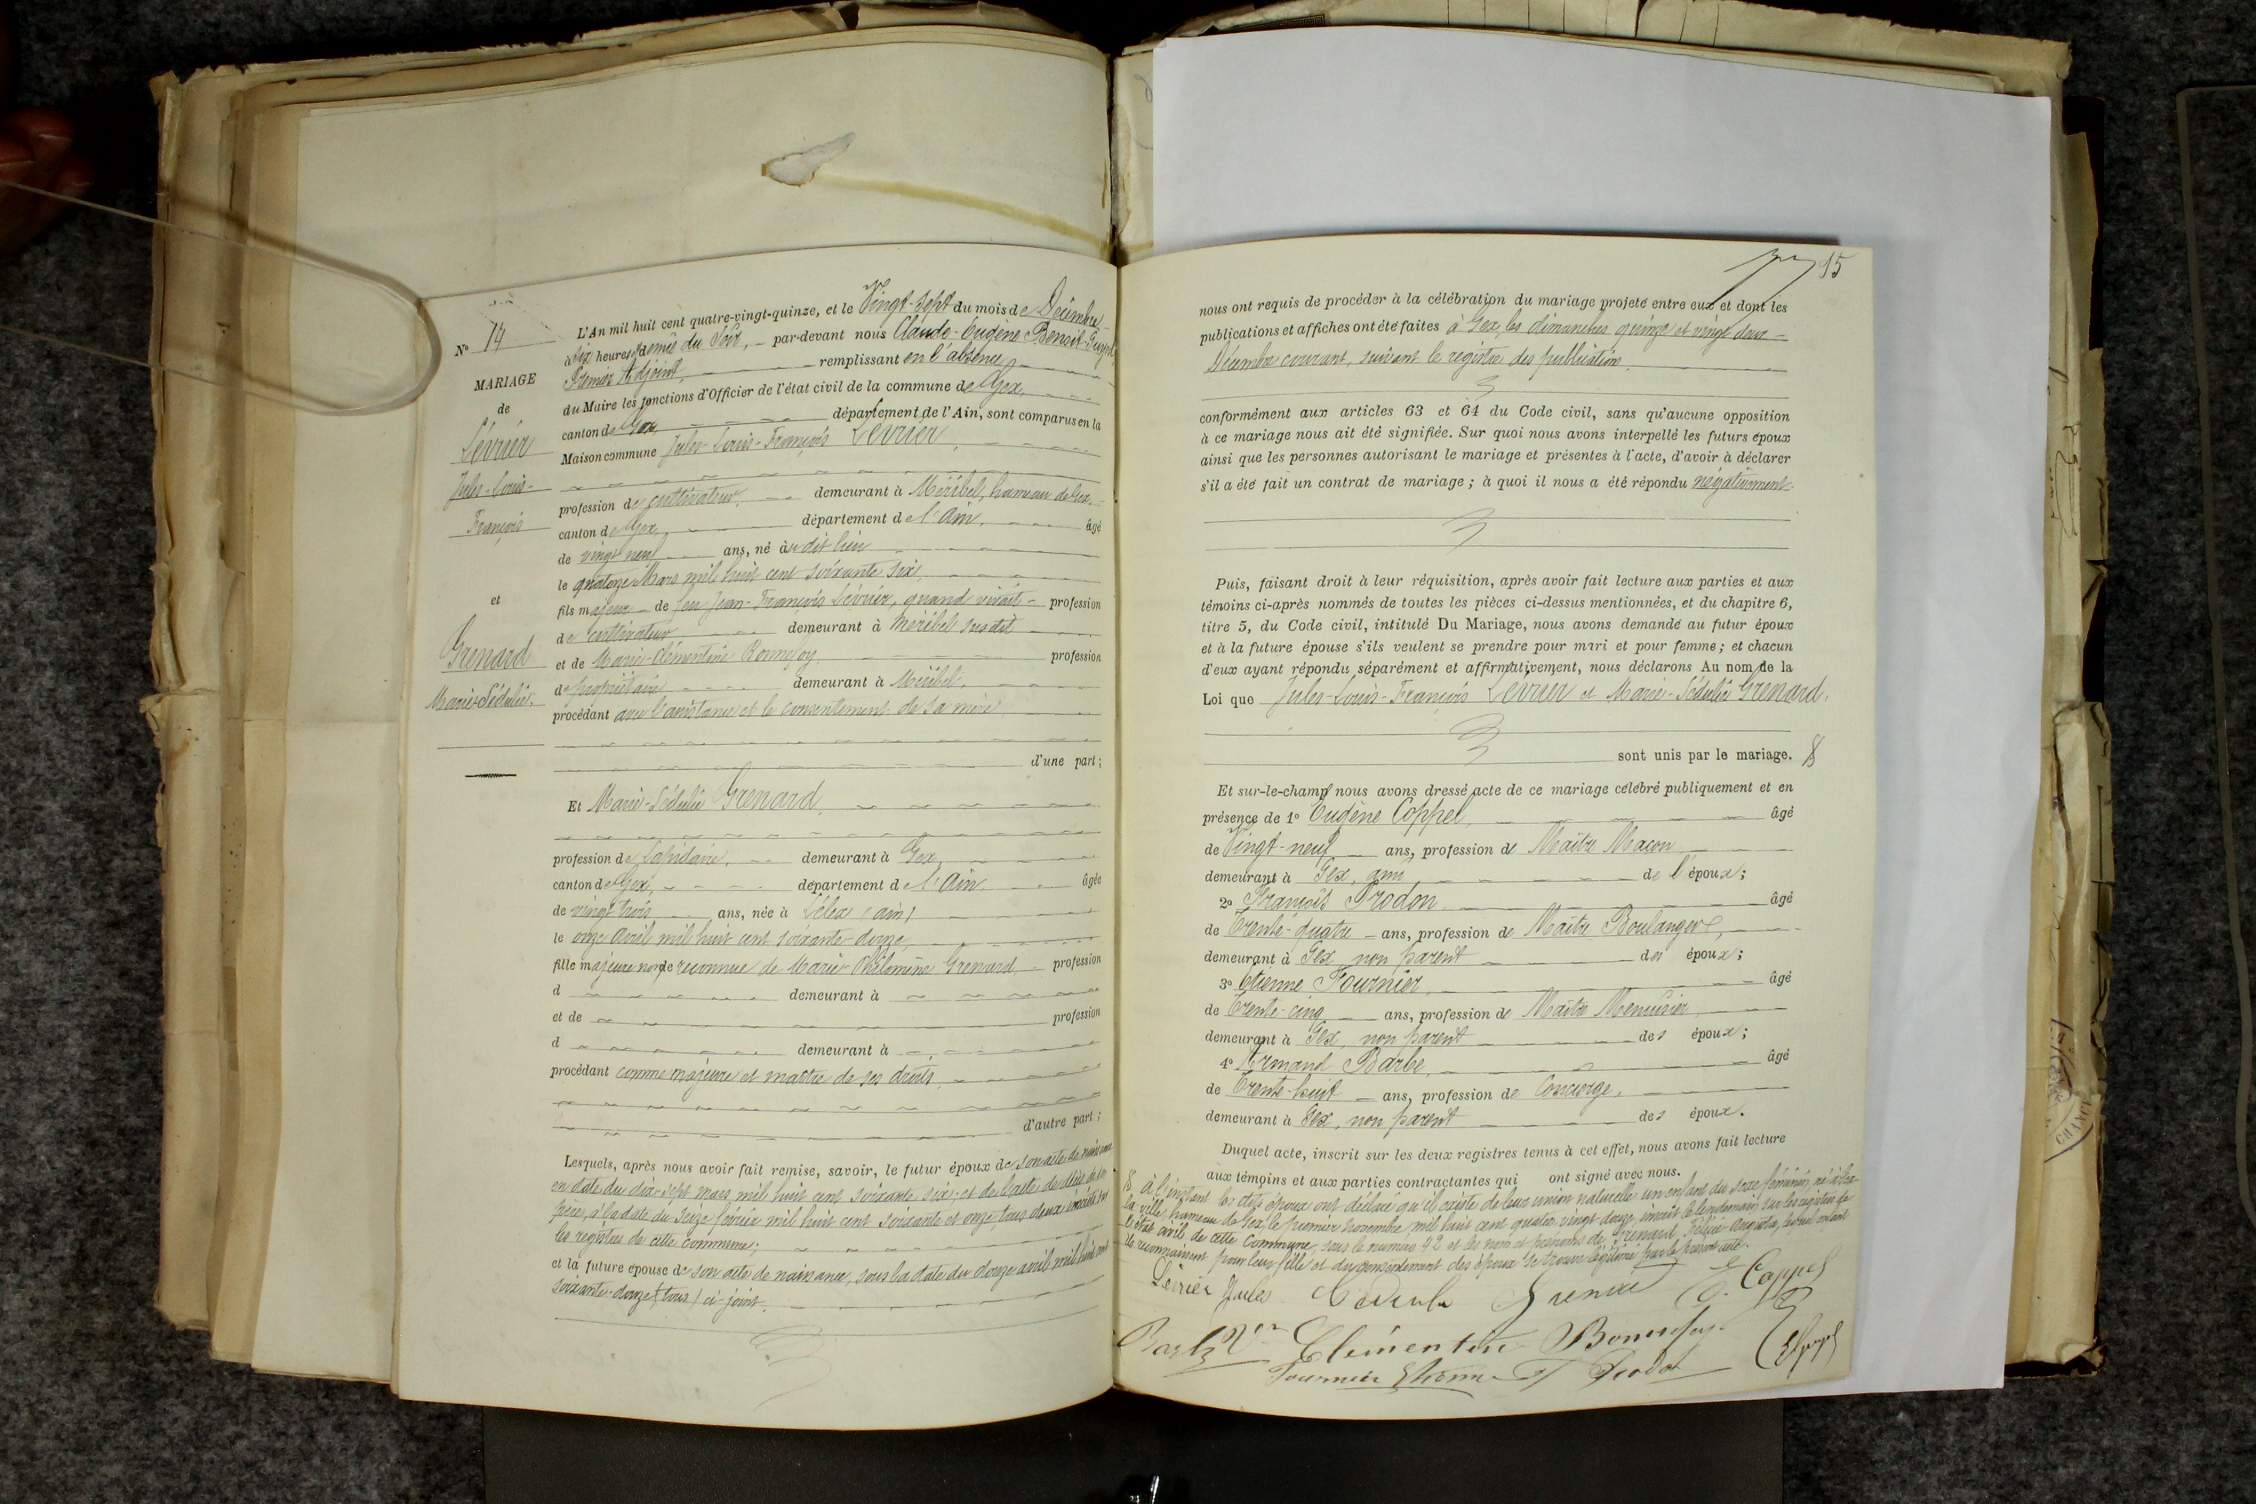 Nº 14
MARIAGE
de
Lévrier
Jules-Louis-
François
et
Grenard
Marie-Sédulie.
L'An mil huit cent quatre-vingt-quinze, et le Vingt-sept du mois de Décembre
à Six heures demie du Soir, par-devant nous Claude-Eugène Benoit-Guyot,
Premier Adjoint, remplissant en l'absence
du Maire les fonctions d'Officier de l'état civil de la commune de Gex,
canton de Gex, département de l'Ain, sont comparus en la
Maison commune Jules-Louis-François Lévrier,
profession de cultivateur, demeurant à Méribel, hameau de Gex,
canton de Gex, département de l'Ain, âgé
de vingt neuf ans, né au dit lieu
le quatorze Mars mil huit cent soixante six,
fils majeur de feu Jean-François Lévrier, quand vivait profession
de cultivateur demeurant à Méribel susdit
et de Marie-Clémentine Bonnefoy profession
de propriétaire demeurant à Méribel,
procédant avec l'assistance et le consentement de sa mère
d'une part;
Et Marie-Sédulie Grenard,
profession de Lapidaire, demeurant à Gex,
canton de Gex, département de l'Ain, âgée
de vingt trois ans, née à Lélex (ain)
le onze avril mil huit cent soixante-douze,
fille majeure non reconnue de Marie Philomène Grenard profession
d demeurant à
et de profession
d demeurant à
procédant comme majeure et maître de ses droits,
d'autre part;
Lesquels, après nous avoir fait remise, savoir, le futur époux de son acte de naissance
en date du dix-sept mars mil huit cent soixante six; et de l'acte de décès de son
père, à la date du seize février mil huit cent soixante et onze tous deux inscrits sur
les registres de cette commune;
et la future épouse de son acte de naissance, sous la date du douze avril mil huit cent
soixante-douze (tous) ci-joint.
15
nous ont requis de procéder à la célébration du mariage projeté entre eux et dont les
publications et affiches ont été faites à Gex, les dimanches quinze et vingt deux
Décembre courant, suivant le registre des publications.
conformément aux articles 63 et 64 du Code civil, sans qu'aucune opposition
à ce mariage nous ait été signifiée. Sur quoi nous avons interpellé les futurs époux
ainsi que les personnes autorisant le mariage et présentes à l'acte, d'avoir à déclarer
s'il a été fait un contrat de mariage; à quoi il nous a été répondu négativement.
Puis, faisant droit à leur réquisition, après avoir fait lecture aux parties et aux
témoins ci-après nommés de toutes les pièces ci-dessus mentionnées, et du chapitre 6,
titre 5, du Code civil, intitulé Du Mariage, nous avons demandé au futur époux
et à la future épouse s'ils veulent se prendre pour mari et pour femme; et chacun
d'eux ayant répondu séparément et affirmativement, nous déclarons Au nom de la
Loi que Jules-Louis-François Lévrier et Marie-Sédulie Grenard,
sont unis par le mariage.
Et sur-le-champ nous avons dressé acte de ce mariage célébré publiquement et en
présence de 1º Eugène Coppel, âgé
de Vingt-neuf ans, profession de Maître Maçon
demeurant à Gex, ami de l'époux;
2º François Prodon âgé
de Trente-quatre ans, profession de Maître Boulanger,
demeurant à Gex, non parent des époux;
3º Etienne Fournier, âgé
de Trente-cinq ans, profession de Maître Menuisier,
demeurant à Gex, non parent des époux;
4º Armand Barbe, âgé
de Trente-huit ans, profession de Concierge,
demeurant à Gex, non parent des époux.
Duquel acte, inscrit sur les deux registres tenus à cet effet, nous avons fait lecture
aux témoins et aux parties contractantes qui ont signé avec nous.
à l'instant les dits époux ont déclaré qu'il existe de leur union naturelle un enfant du sexe féminin, né à Gex
la ville, hameau de Gex, le premier novembre mil huit cent quatre vingt douze inscrit le lendemain sur les registres de
l'état civil de cette Commune, sous le numéro 42 et les nom et prénoms de Grenard Félicie Augusta, lequel enfant
ils reconnaissent pour leur fille et du consentement des époux se trouve légitimé par le présent acte.
Lévrier Jules Sédulie Grenard E. Coppel
Barbe Clémentine Bonnefoy
Fournier Etienne F Prodon